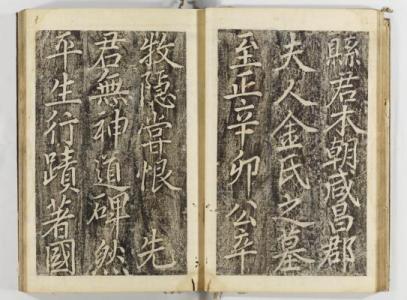 縣君本朝咸昌郡
夫人金氏之墓
至正辛卯公卒
牧隱嘗恨 先
君無神道碑然
平生行蹟著國